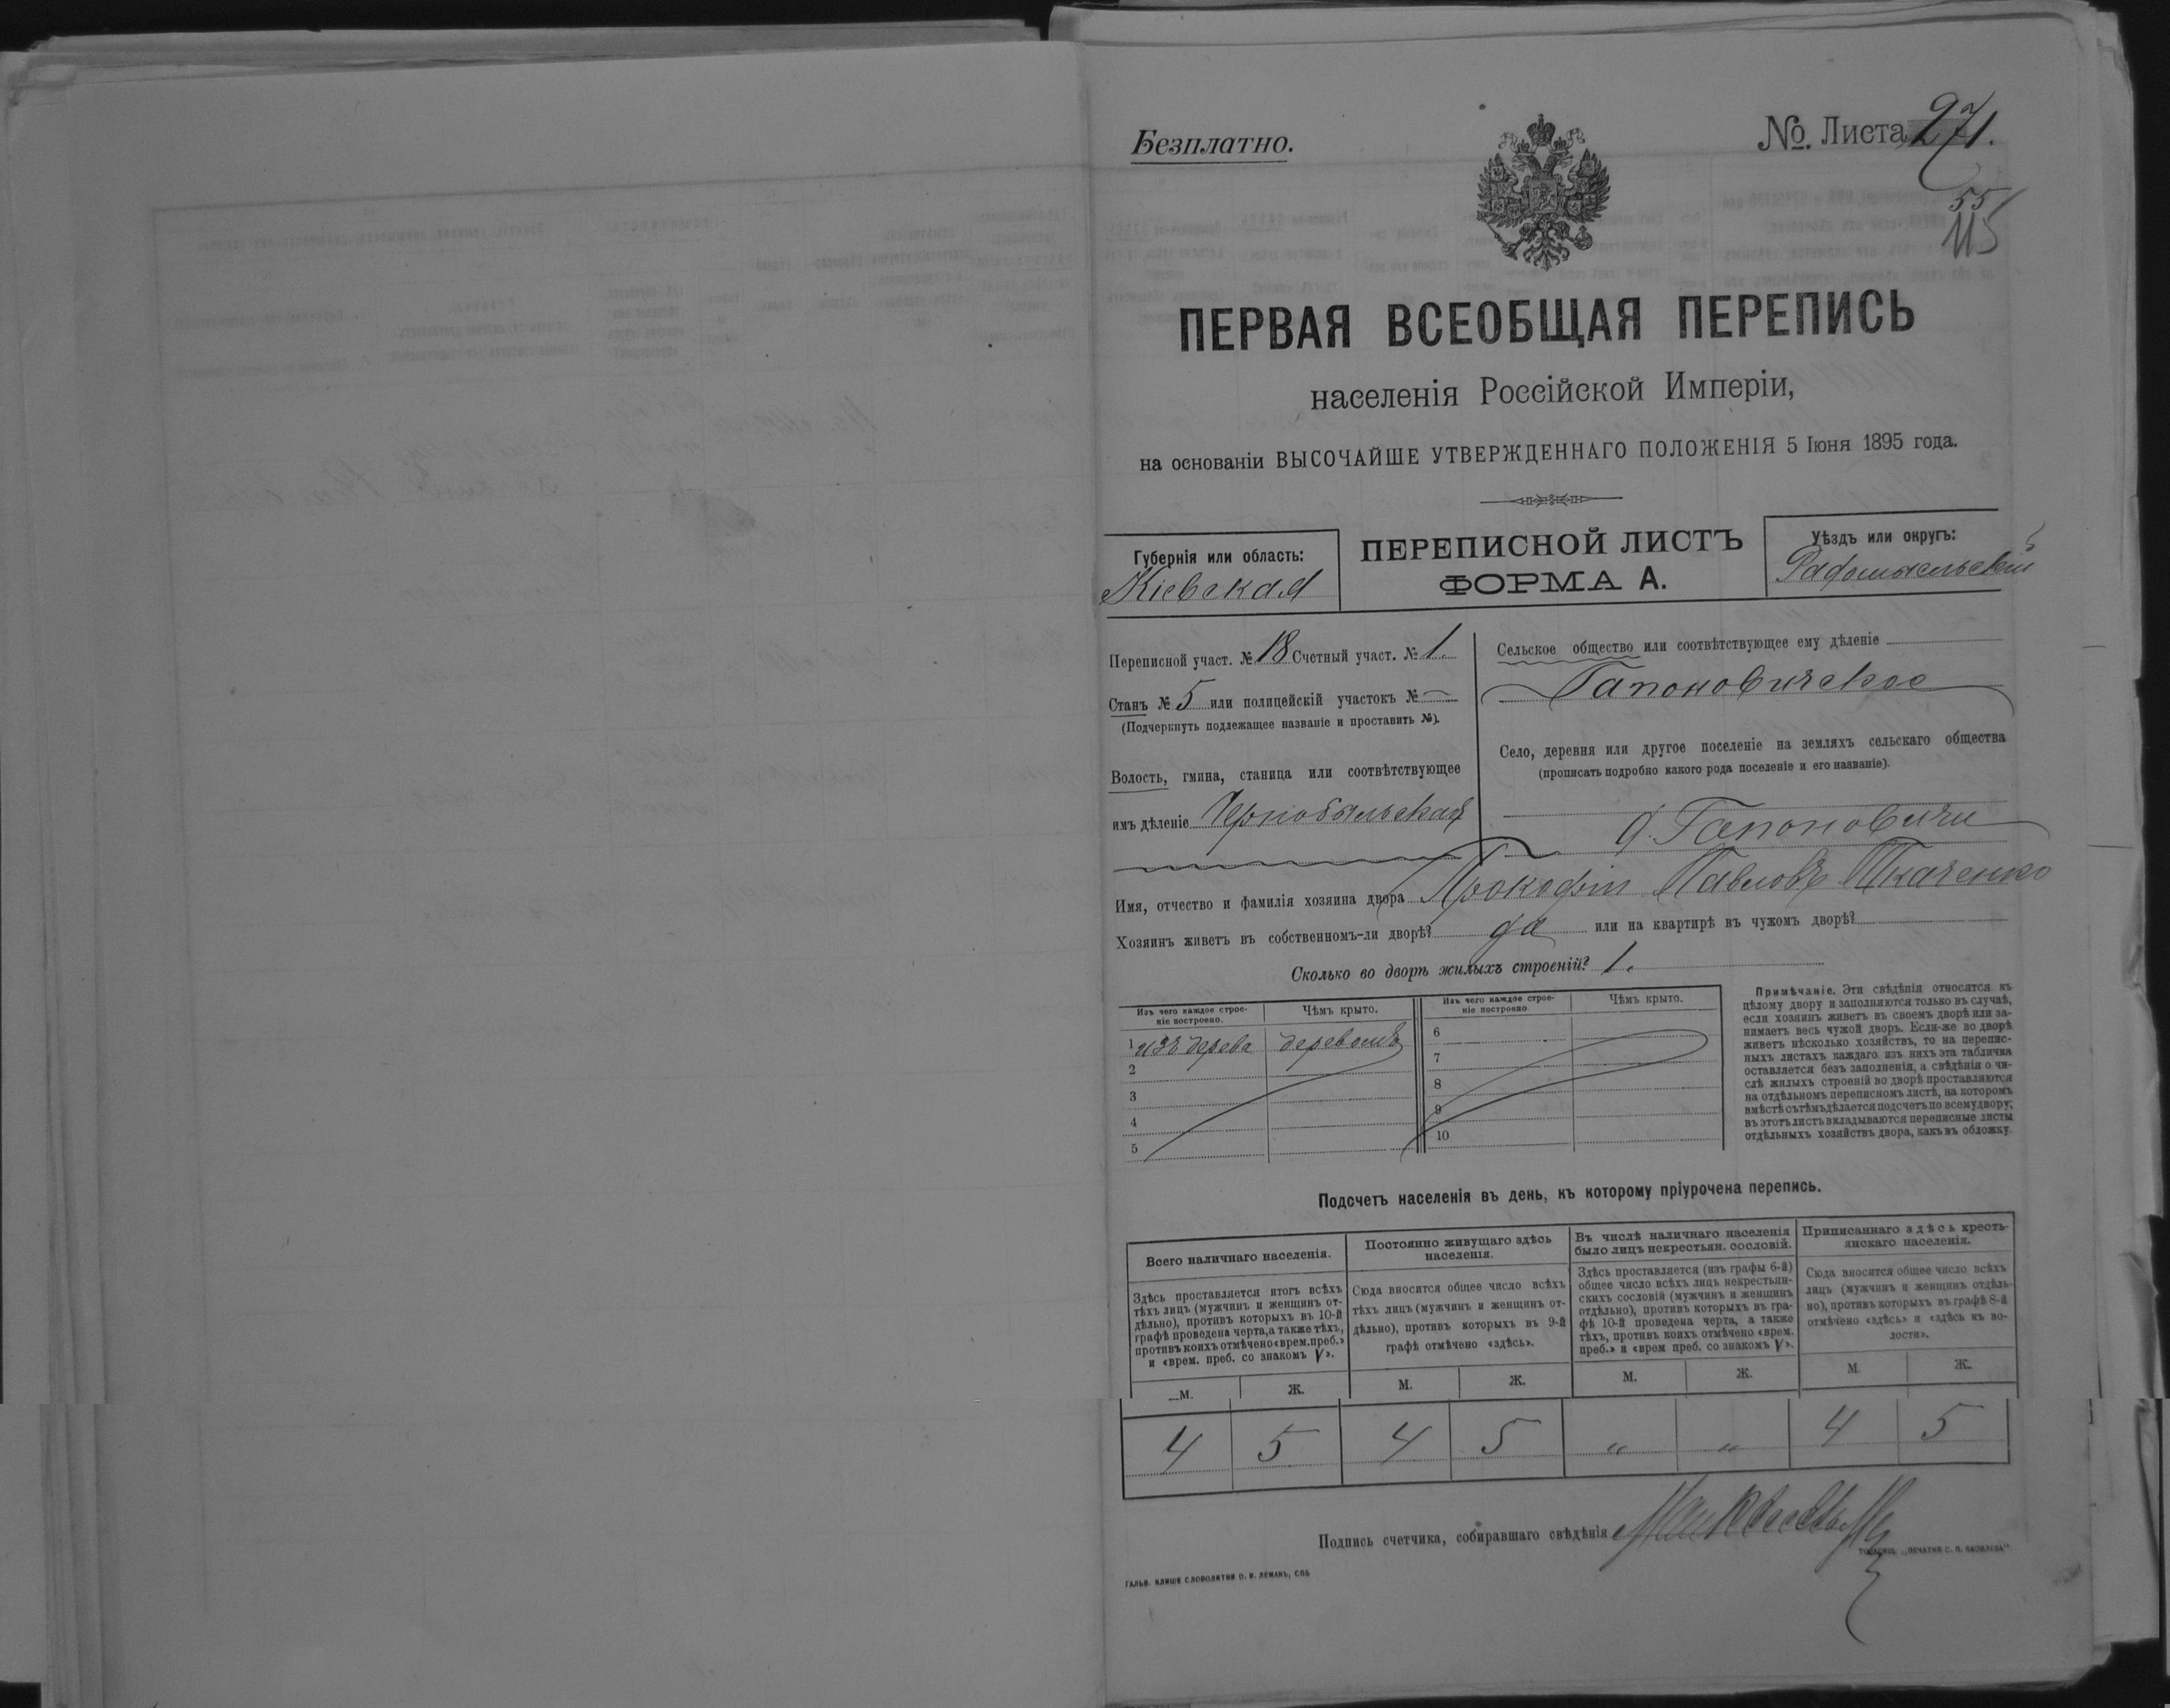 Безплатно.
№. Листа 271.
55
115
ПЕРВАЯ ВСЕОБЩАЯ ПЕРЕПИСЬ
населенія Россійской Имперіи,
на основаніи ВЫСОЧАЙШЕ УТВЕРЖДЕННАГО ПОЛОЖЕНІЯ 5 Іюня 1895 года.
Губернія или область:
Кіевская
ПЕРЕПИСНОЙ ЛИСТЪ
ФОРМА А.
Уѣздъ или округъ:
Радомысльскій
Переписной участ. № 18 Счетный участ. № 1.
Станъ № 5 или полицейскій участокъ № —
(Подчеркнуть подлежащее названіе и проставить №).
Волость, гмина, станица или соотвѣтствующее
имъ дѣленіе Чернобыльская
Сельское общество или соотвѣтствующее ему дѣленіе
Гапоновичское
Село, деревня или другое поселеніе на земляхъ сельскаго общества
(прописать подробно какого рода поселеніе и его названіе).
д. Гапоновичи
Имя, отчество и фамилія хозяина двора Прокофій Павловъ Ткаченко
Хозяинъ живетъ въ собственномъ-ли дворѣ? да или на квартирѣ въ чужомъ дворѣ?
Сколько во дворѣ жилыхъ строеній? 1.
Изъ чего каждое строе-
ніе построено.
Чѣмъ крыто.
1 изъ дерева деревомъ
2
3
4
5
Изъ чего каждое строе-
ніе построено
Чѣмъ крыто.
6
7
8
9
10
Примѣчаніе. Эти свѣдѣнія относятся къ
цѣлому двору и заполняются только въ случаѣ,
если хозяинъ живетъ въ своемъ дворѣ или за-
нимаетъ весь чужой дворъ. Если-же во дворѣ
живетъ нѣсколько хозяйствъ, то на перепис-
ныхъ листахъ каждаго изъ нихъ эта табличка
оставляется безъ заполненія, а свѣдѣнія о чи-
слѣ жилыхъ строеній во дворѣ проставляются
на отдѣльномъ переписномъ листѣ, на которомъ
вмѣстѣ съ тѣмъ дѣлается подсчетъ по всему двору;
въ этотъ листъ вкладываются переписные листы
отдѣльныхъ хозяйствъ двора, какъ въ обложку.
Подсчетъ населенія въ день, къ которому пріурочена перепись.
Всего наличнаго населенія.
Здѣсь проставляется итогъ всѣхъ
тѣхъ лицъ (мужчинъ и женщинъ от-
дѣльно), противъ которыхъ въ 10-й
графѣ проведена черта, а также тѣхъ,
противъ коихъ отмѣчено «врем. преб.»
и «врем. преб. со знакомъ V».
М. Ж.
Постоянно живущаго здѣсь
населенія.
Сюда вносится общее число всѣхъ
тѣхъ лицъ (мужчинъ и женщинъ от-
дѣльно), противъ которыхъ въ 9-й
графѣ отмѣчено «здѣсь».
М. Ж.
Въ числѣ наличнаго населенія
было лицъ некрестьян. сословій.
Здѣсь проставляется (изъ графы 6-й)
общее число всѣхъ лицъ некрестьян-
скихъ сословій (мужчинъ и женщинъ
отдѣльно), противъ которыхъ въ гра-
фѣ 10-й проведена черта, а также
тѣхъ, противъ коихъ отмѣчено «врем.
преб.» и «врем преб. со знакомъ V».
М. Ж.
Приписаннаго здѣсь кресть-
янскаго населенія.
Сюда вносится общее число всѣхъ
лицъ (мужчинъ и женщинъ отдѣль-
но), противъ которыхъ въ графѣ 8-й
отмѣчено «здѣсь» и «здѣсь къ во-
лости».
М. Ж.
4 5 4 5 " " 4 5
Подпись счетчика, собиравшаго свѣдѣнія
ГАЛЬВ. КЛИШЕ СЛОВОЛИТНИ О. И. ЛЕМАНЪ, СПБ
ТОВАРИЩ. „ПЕЧАТНЯ С. П. ЯКОВЛЕВА".